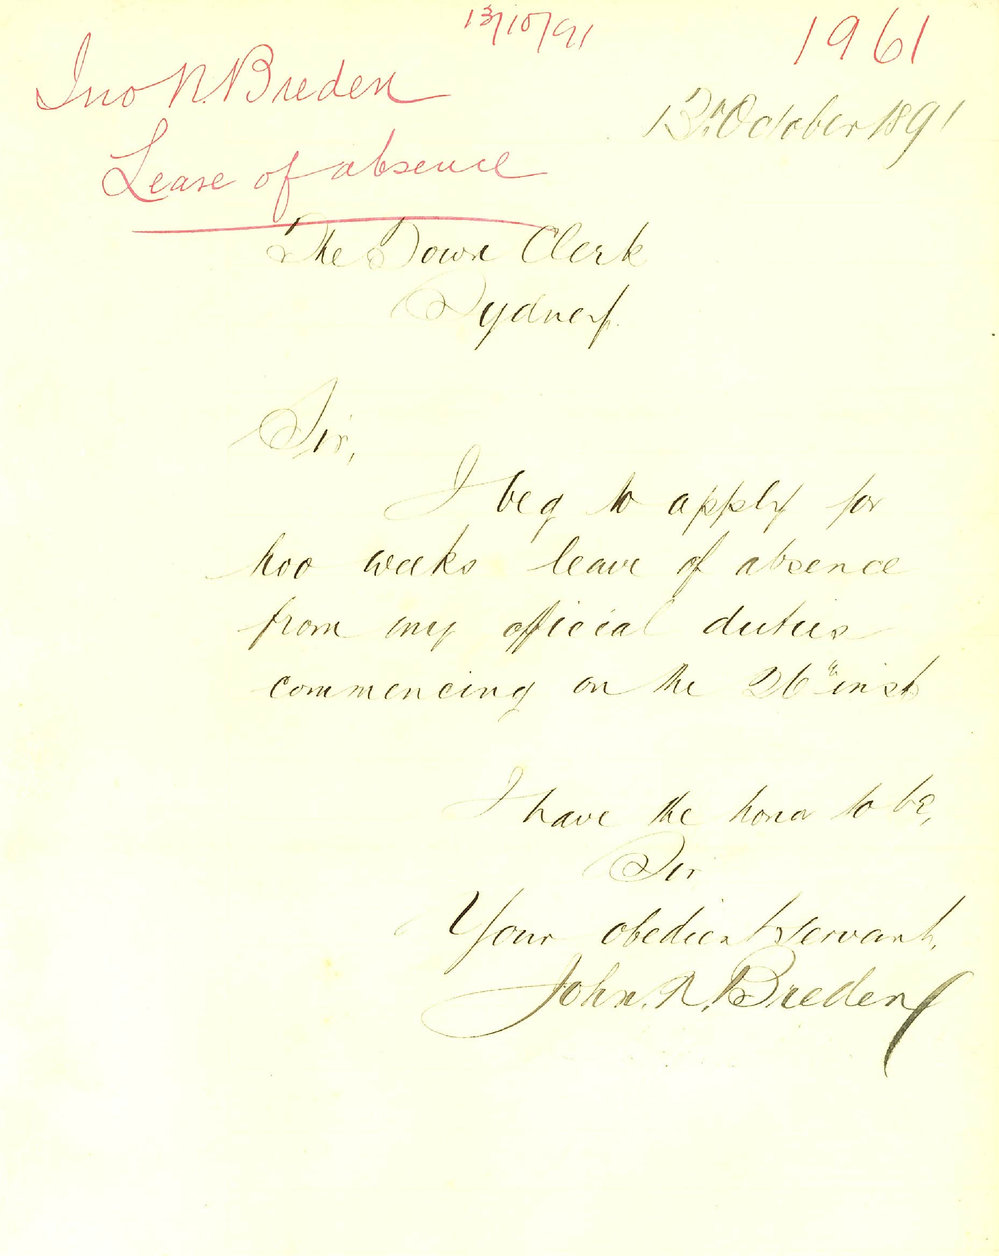 13/10/91
1961
Jno R. Breden
Leave of absence
13th October 1891
The Town Clerk
Sydney
Sir,
I beg to apply for
two weeks leave of absence
from my official duties
commencing on the 26th inst
I have the honor to be,
Sir
Your obedient servant,
John. R. Breden